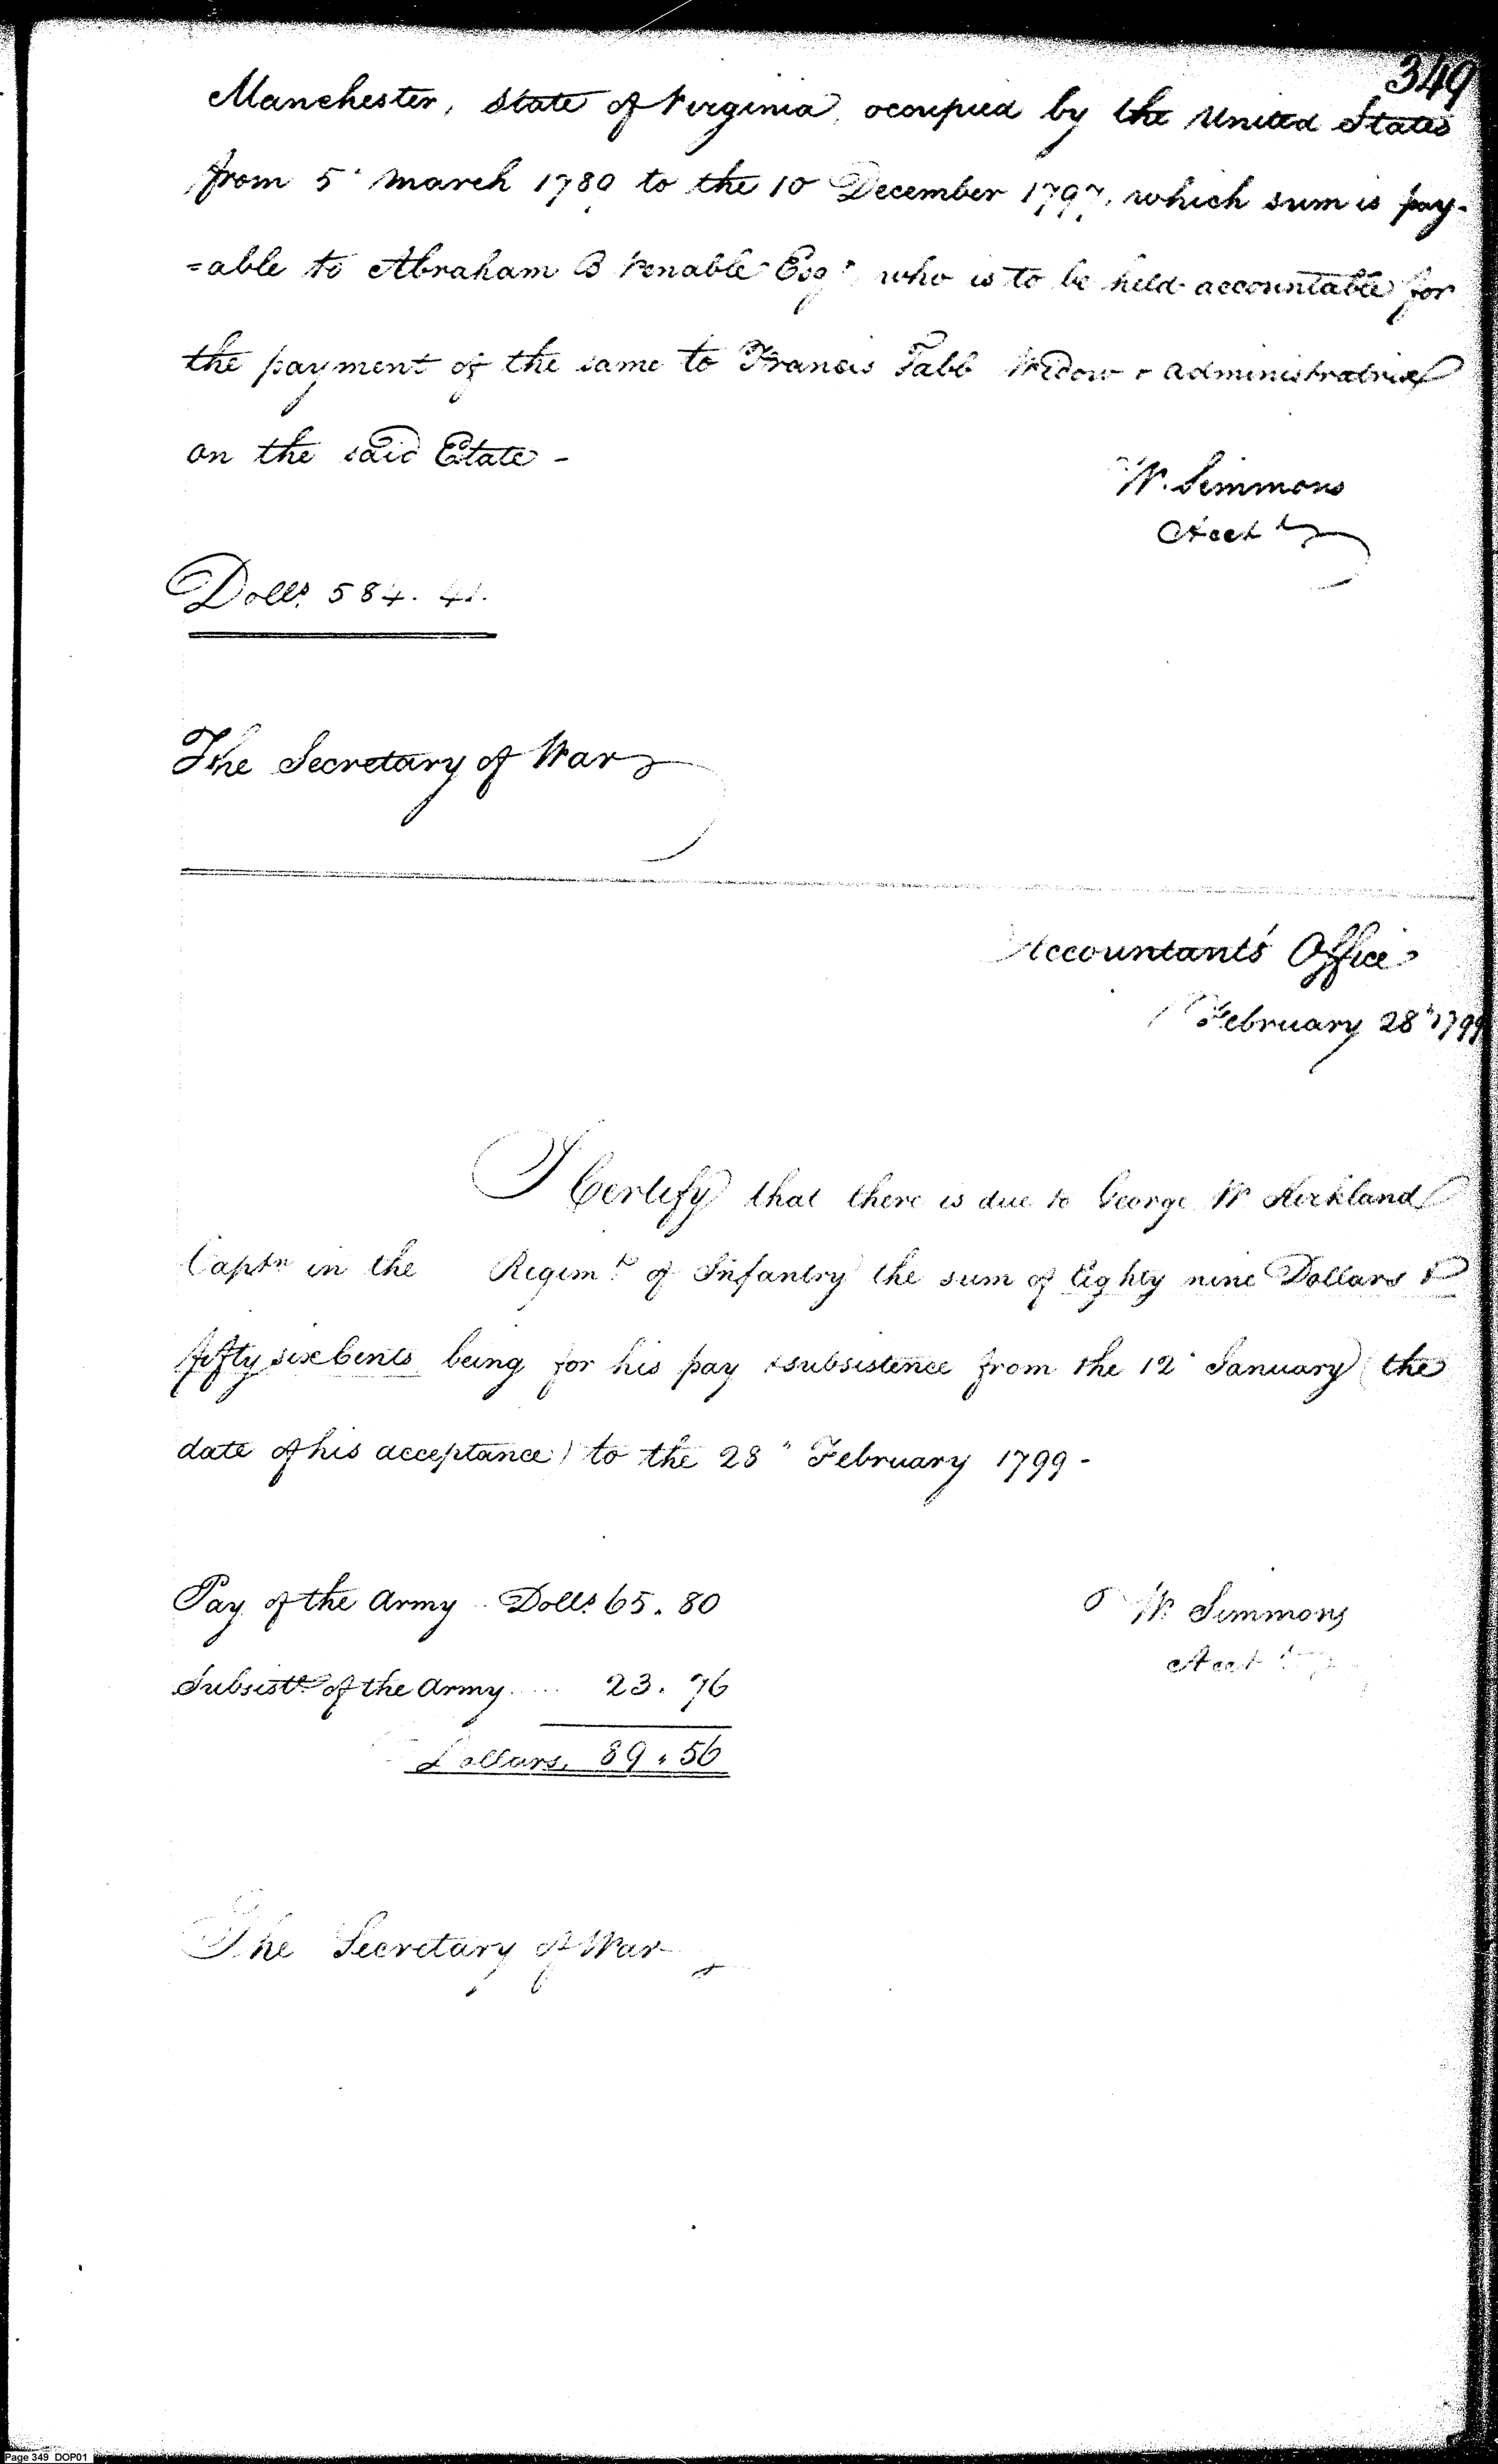 349
Manchester, State of Virginia, occupied by the United States
from 5" March 1789 to the 10 December 1797, which sum is pay-
=able to Abraham B Venable Esqr. who is to be held accountable for
the payment of the same to Francis Tabb Widow & administratrix
on the said Estate -
W. Simmons
Acct
Dolls. 584. 41.
The Secretary of War
Accountant's Office
February 28" 1799
I Certify that there is due to George W Kirkland
Captn in the Regimt. of Infantry the sum of Eighty nine Dollars &
fifty six Cents being for his pay & subsistence from the 12" January (the
date of his acceptance) to the 28" February 1799 -
Pay of the Army Dolls. 65. 80
W. Simmons
Acct
Subsistce of the Army 23. 76
Dollars, 89. 56
The Secretary of War
Page 349 DOP01